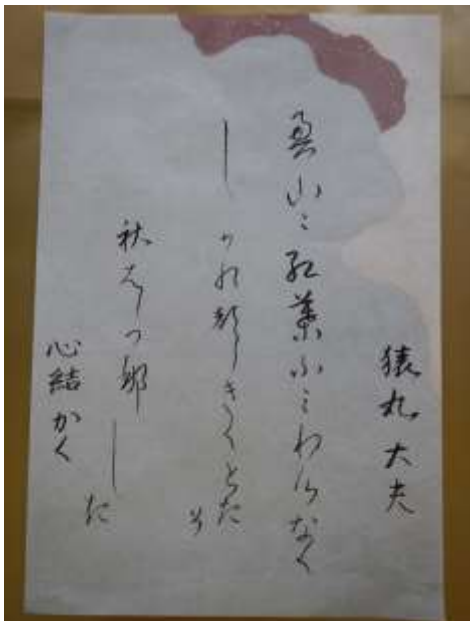 猿丸大夫
奥山に紅葉ふみわけなく
しかの声きくとき
そ
秋はかなしき
心結かく